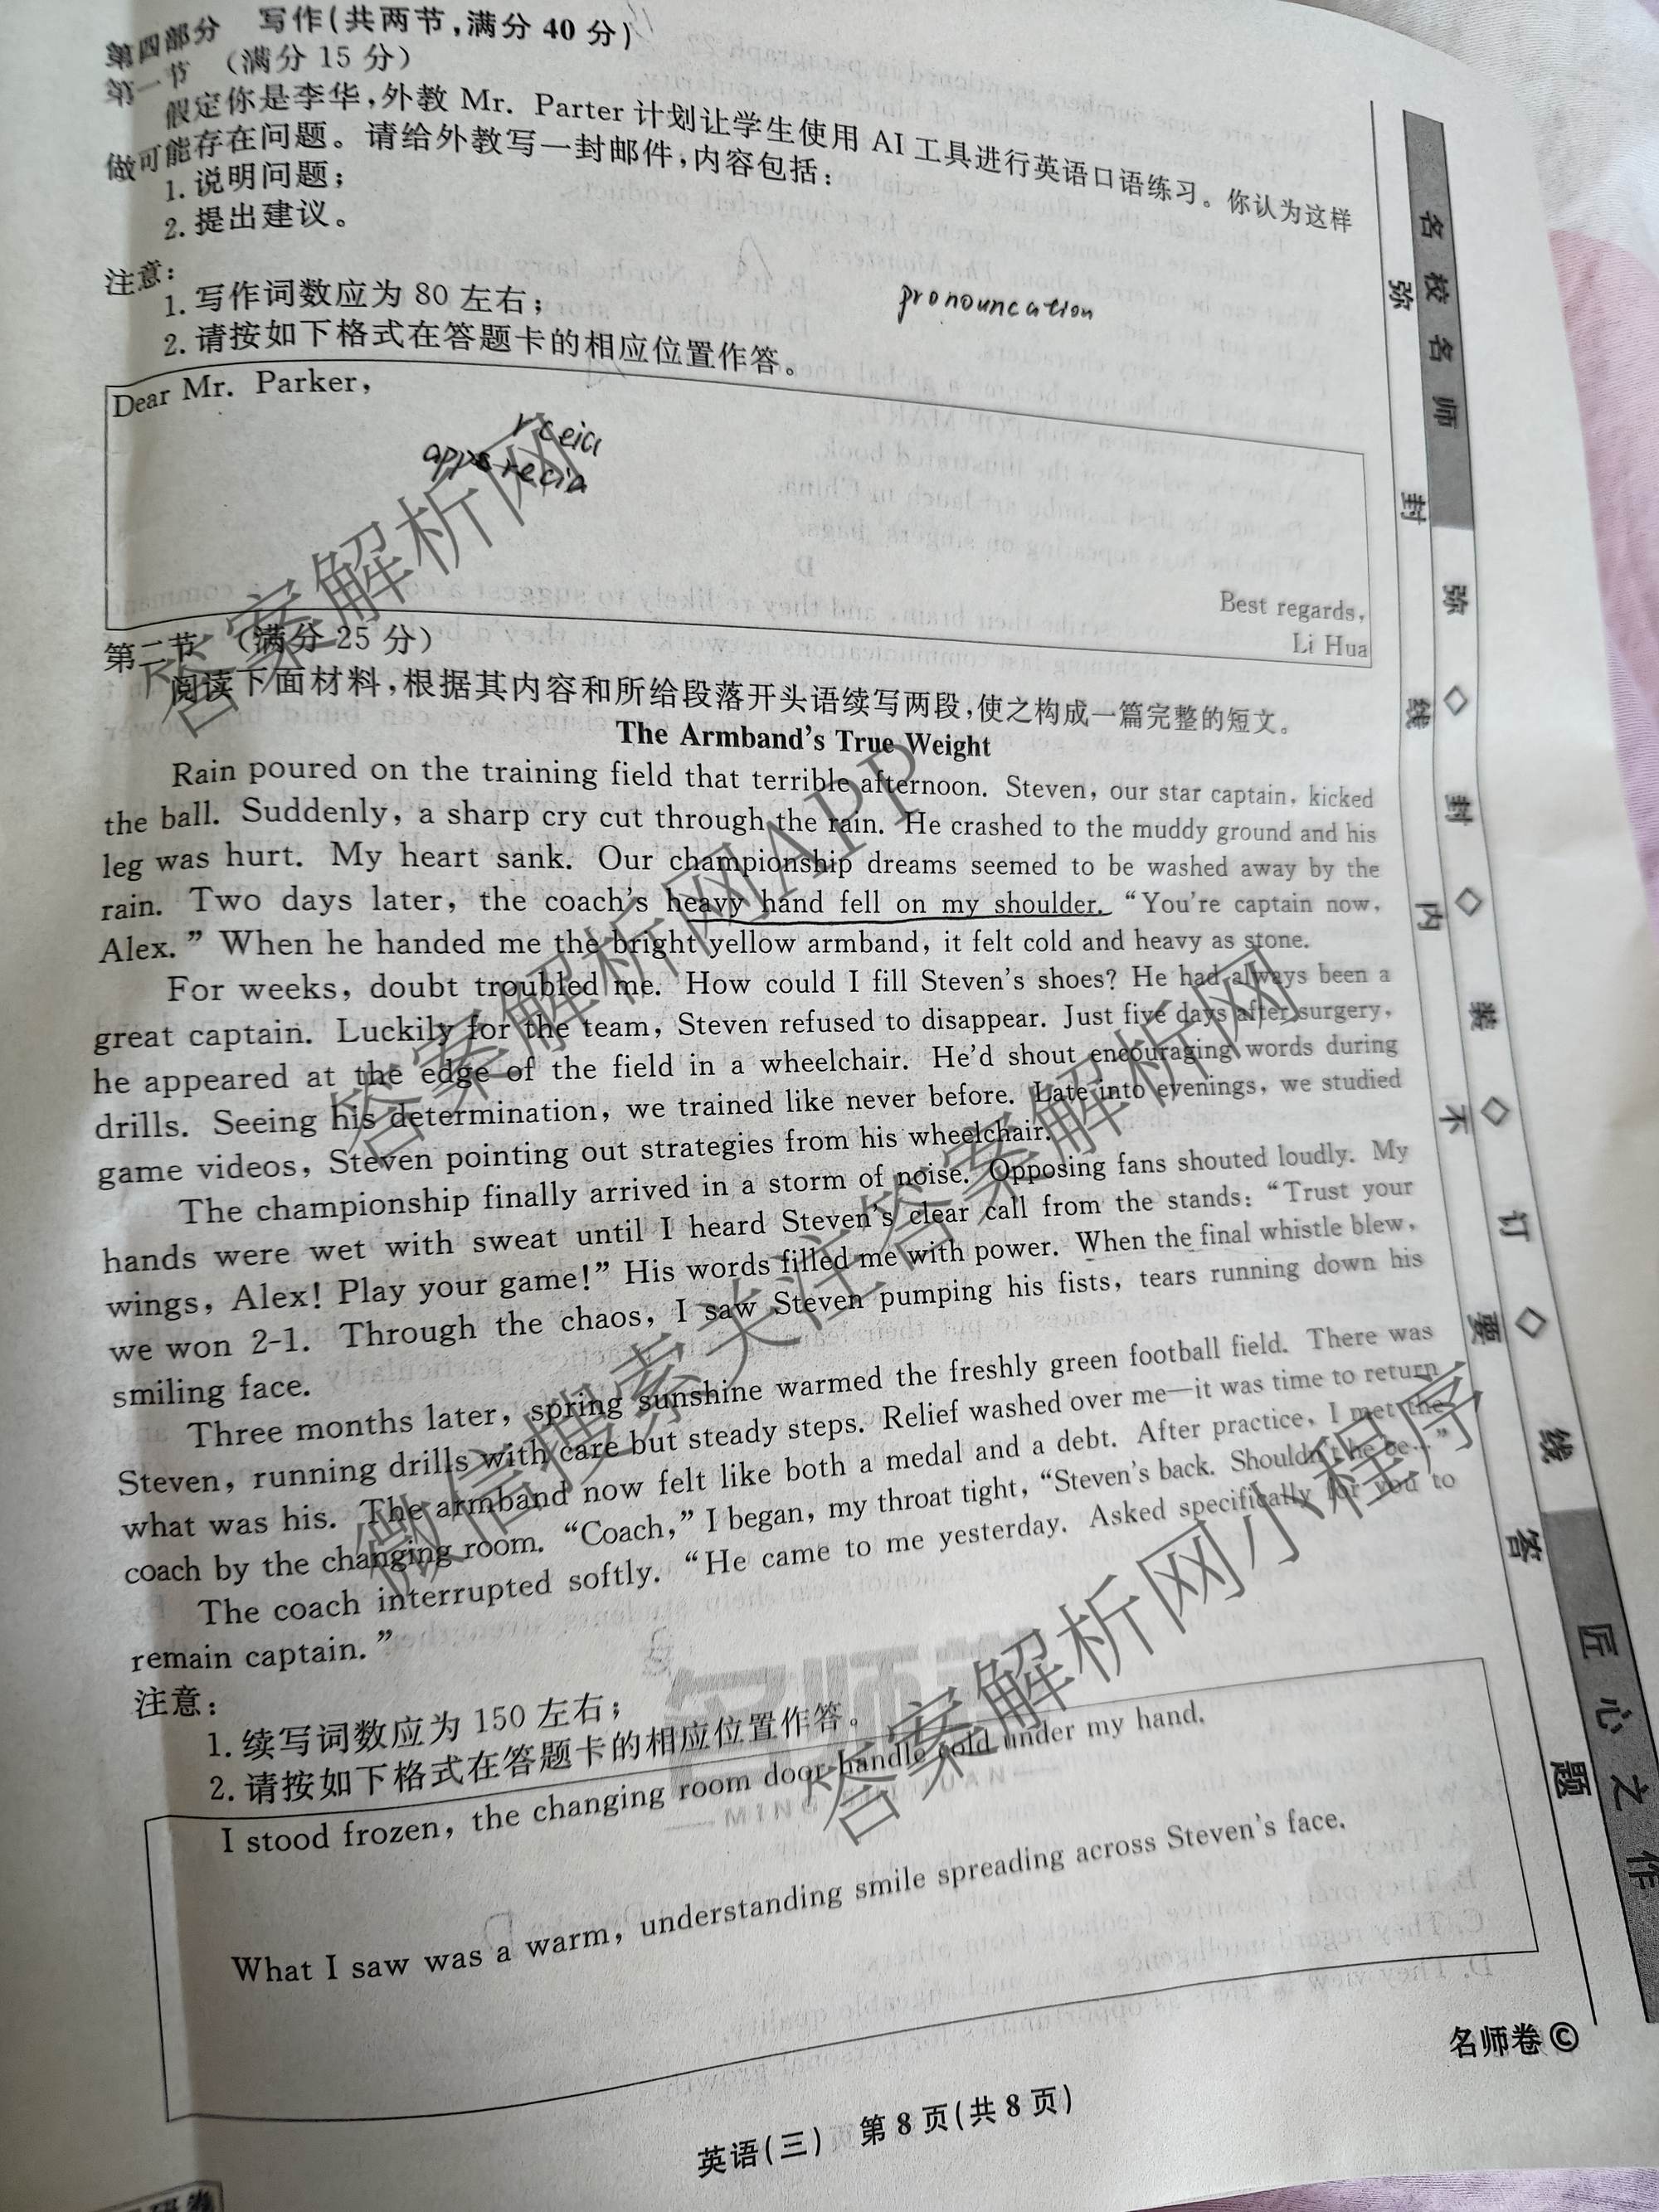 第四部分 写作(共两节,满分 40 分)
第一节 (满分 15 分)
假定你是李华,外教 Mr. Parter 计划让学生使用 AI 工具进行英语口语练习。你认为这样
做可能存在问题。请给外教写一封邮件,内容包括:
1. 说明问题;
2. 提出建议。
注意:
1. 写作词数应为 80 左右;
2. 请按如下格式在答题卡的相应位置作答。
pronouncation
Dear Mr. Parker,
Best regards,
Li Hua
第二节 (满分 25 分)
阅读下面材料,根据其内容和所给段落开头语续写两段,使之构成一篇完整的短文。
The Armband's True Weight
Rain poured on the training field that terrible afternoon. Steven, our star captain, kicked
the ball. Suddenly, a sharp cry cut through the rain. He crashed to the muddy ground and his
leg was hurt. My heart sank. Our championship dreams seemed to be washed away by the
rain. Two days later, the coach's heavy hand fell on my shoulder. “You're captain now,
Alex.” When he handed me the bright yellow armband, it felt cold and heavy as stone.
For weeks, doubt troubled me. How could I fill Steven's shoes? He had always been a
great captain. Luckily for the team, Steven refused to disappear. Just five days after surgery,
he appeared at the edge of the field in a wheelchair. He'd shout encouraging words during
drills. Seeing his determination, we trained like never before. Late into evenings, we studied
game videos, Steven pointing out strategies from his wheelchair.
The championship finally arrived in a storm of noise. Opposing fans shouted loudly. My
hands were wet with sweat until I heard Steven's clear call from the stands: “Trust your
wings, Alex! Play your game!” His words filled me with power. When the final whistle blew,
we won 2-1. Through the chaos, I saw Steven pumping his fists, tears running down his
smiling face.
Three months later, spring sunshine warmed the freshly green football field. There was
Steven, running drills with care but steady steps. Relief washed over me—it was time to return
what was his. The armband now felt like both a medal and a debt. After practice, I met the
coach by the changing room. “Coach,” I began, my throat tight, “Steven's back. Shouldn't he be…”
The coach interrupted softly. “He came to me yesterday. Asked specifically for you to
remain captain.”
注意:
1. 续写词数应为 150 左右;
2. 请按如下格式在答题卡的相应位置作答。
I stood frozen, the changing room door handle cold under my hand.
What I saw was a warm, understanding smile spreading across Steven's face.
名师卷 ©
英语(三) 第 8 页(共 8 页)
名校名师 弥 ◇ 封 ◇ 装 ◇ 订 ◇ 线 匠心之作
弥 封 线 内 不 要 答 题
答案解析网
答案解析网APP
微信搜索关注答案解析网
答案解析网小程序